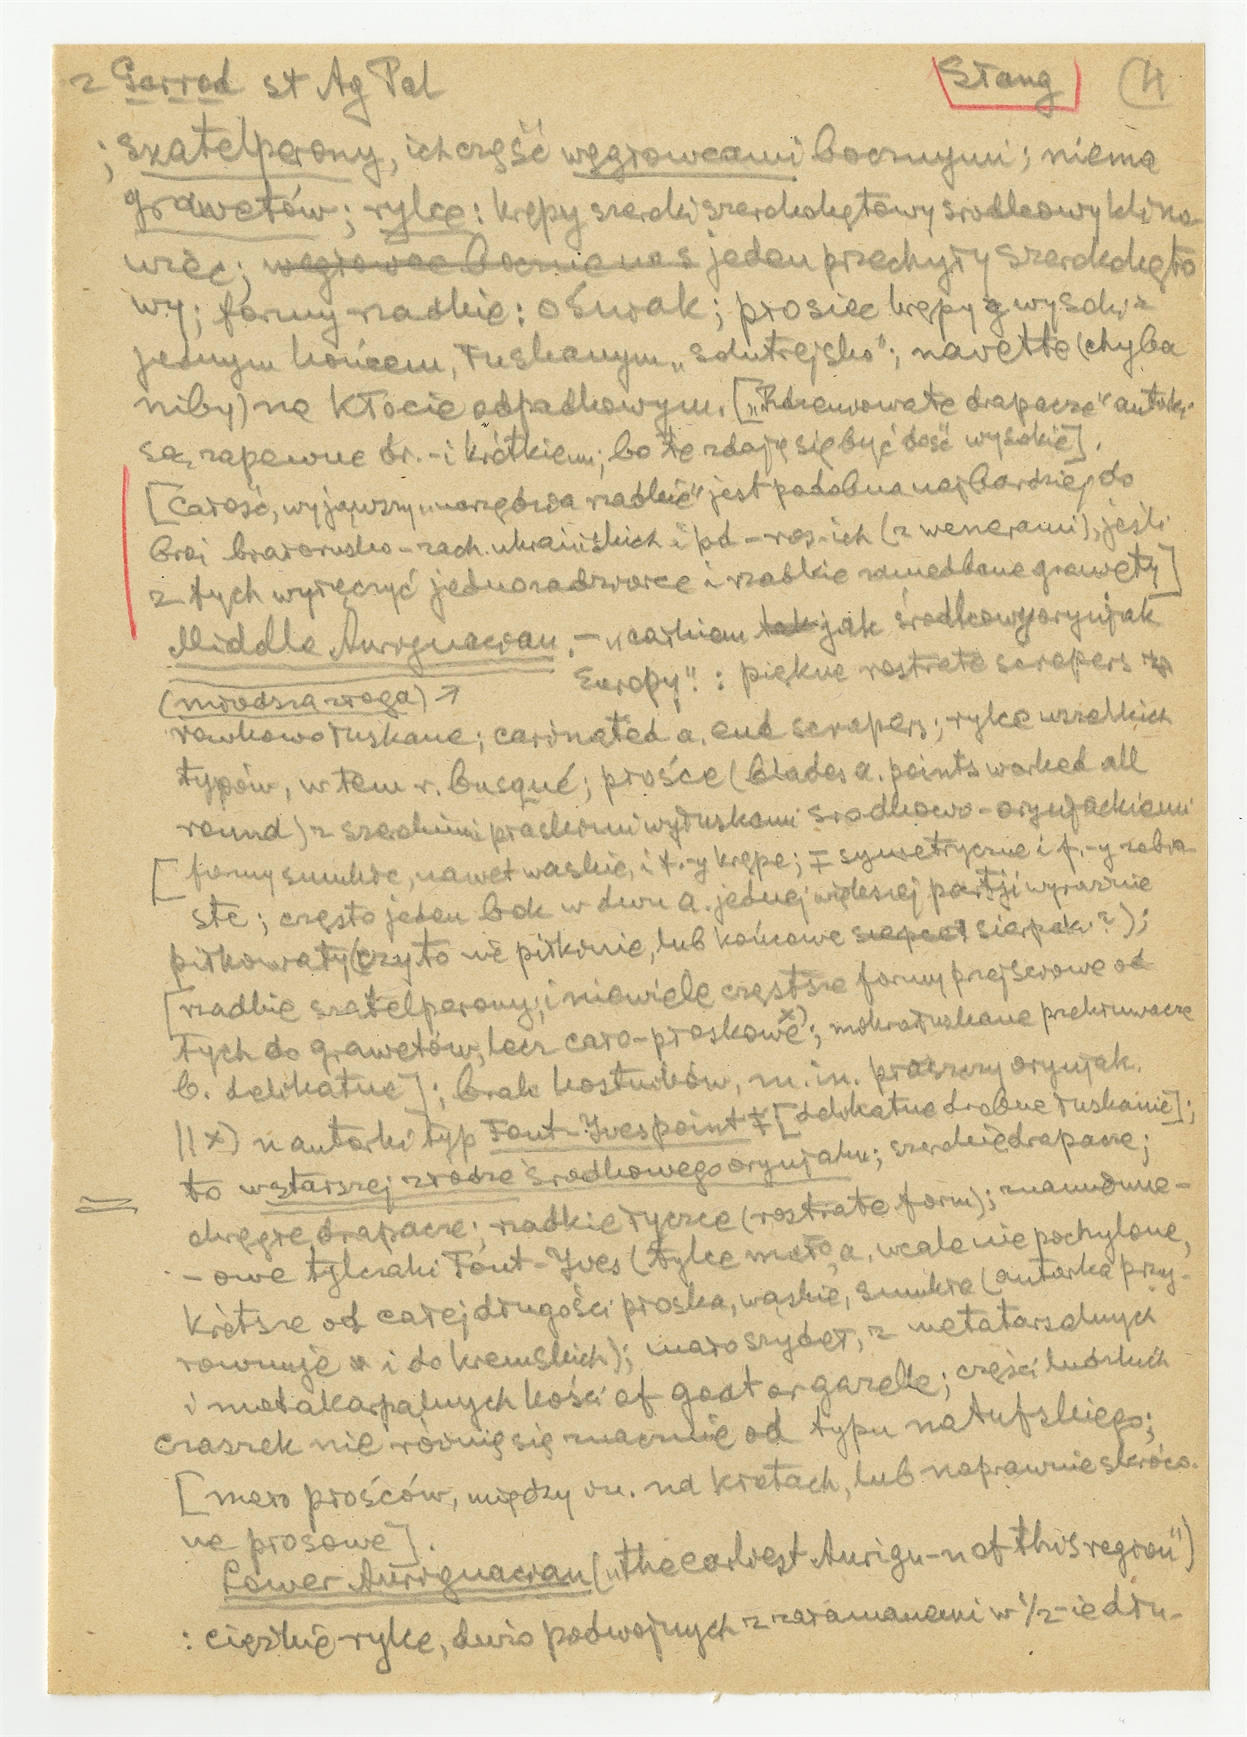 z Garrod st Ag Pal Stang 4
; szatelperony, ich część węgłowcami bocznymi; niema
grawetów; rylce: krępy szeroki szerokokątowy środkowy klino-
wzęc; węgłowce boczne nas jeden przechyły szerokokąto
wy; formy rzadkie: ośnrak; prosiec krępy z wysoki z
jednym końcem, łuskanym „solutrejsko"; navette (chyba
niby) na kłocie odpadkowym. ["Rdzeniowate drapacze" autorki
są, zapewne dr.-i krótkiemi, bo te zdają się być dość wysokie].
[Całość, wyjąwszy „narzędzia rzadkie" jest podobna najbardziej do
broi białorusko-zach. ukraińskich i pd-ros-ich (z wenerami), jeśli
z tych wyręczyć jednozadziorce i rzadkie zaniedbane grawety]
Middle Aurignacian, – „całkiem tak jak środkowy oryniak
Europy": piękne rostrate scrapers
(młodsza złoga) ↗
rowkowo łuskane; carinated a. end scrapers; rylce wszelkich
typów, w tem r. busqué; prośce (blades a. points worked all
round) z szerokimi płaskimi wyłuskami środkowo-oryniackiemi
[formy smukłe, nawet wąskie, i f.-y krępe; ∓ symetryczne i f.-y zobra-
ste; często jeden bok w dwu a. jednej większej partji wyraźnie
piłkowaty (czy to nie piłkinie, lub końcowe sierpaki?);
[rzadkie szatelperony; i niewiele częstsze formy przejściowe od
tych do grawetów, lecz cało-płoskowe x); mokrołuskane przekłuwacze
b. delikatne]; brak kostników, m. in. płaszczy oryniak.
|| x) u autorki typ Font-Yves point ∓ [delikatne drobne łuskanie];
to w starszej złodze środkowego oryniaku; szerokie drapacze;
okrągłe drapacze; rzadkie łyżcze (rostrate form); znamionne-
-owe tylczaki Font-Yves (tylce mało, a. wcale nie pochylone,
krótsze od całej długości płoska, wąskie, smukłe (autorka przy-
równuje i do kremskich); mało szydeł, z metatarsalnych
i metakarpalnych kości of goat or gazelle; części ludzkich
czaszek nie różnią się znacznie od typu natufskiego;
[mało prośców, między in. na krętach, lub naprawnie skróco-
ne prosowe].
Lower Aurignacian („the earliest Aurign-n of this region")
: ciężkie rylce, dużo podwójnych z załamanemi w 1/2-ie dłu-